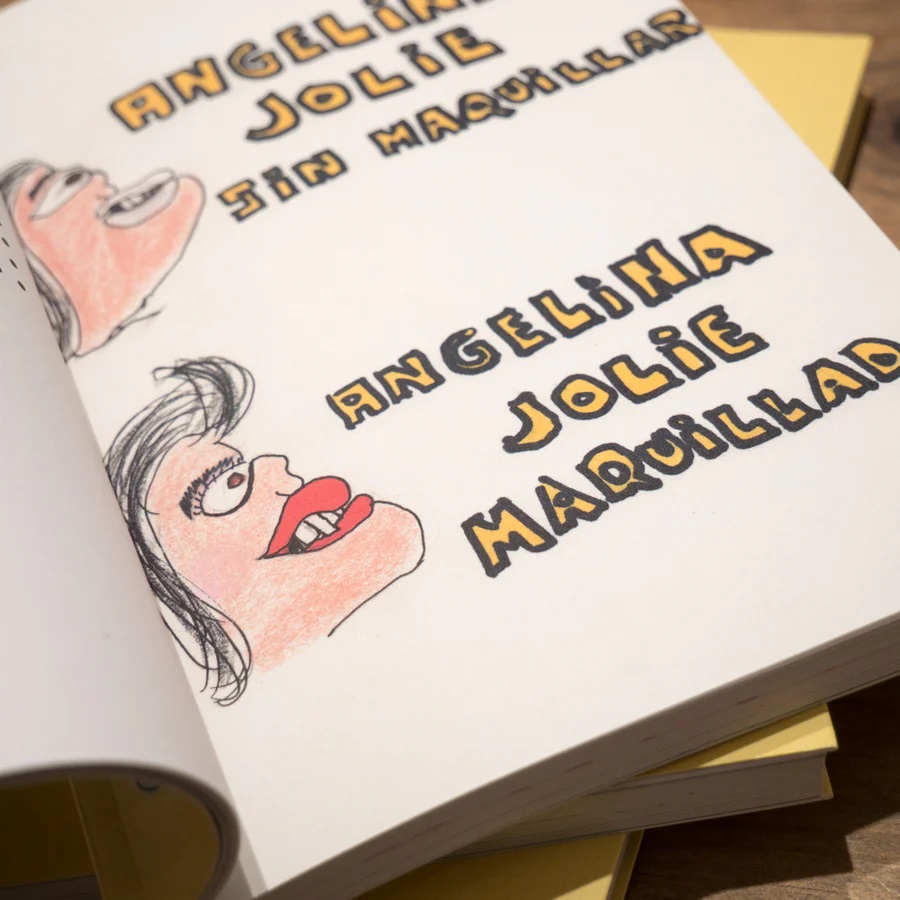 ANGELINA
JOLIE
SIN MAQUILLAR
ANGELiNA
JOLiE
MAQUiLLAD